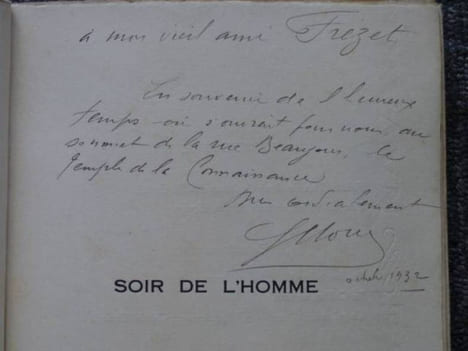 à mon vieil ami Frezet
En souvenir de l'heureux
temps où s'ouvrait pour nous, au
sommet de la rue Beaujon, le
Temple de la Connaissance
cordialement
SOIR DE L'HOMME
1932